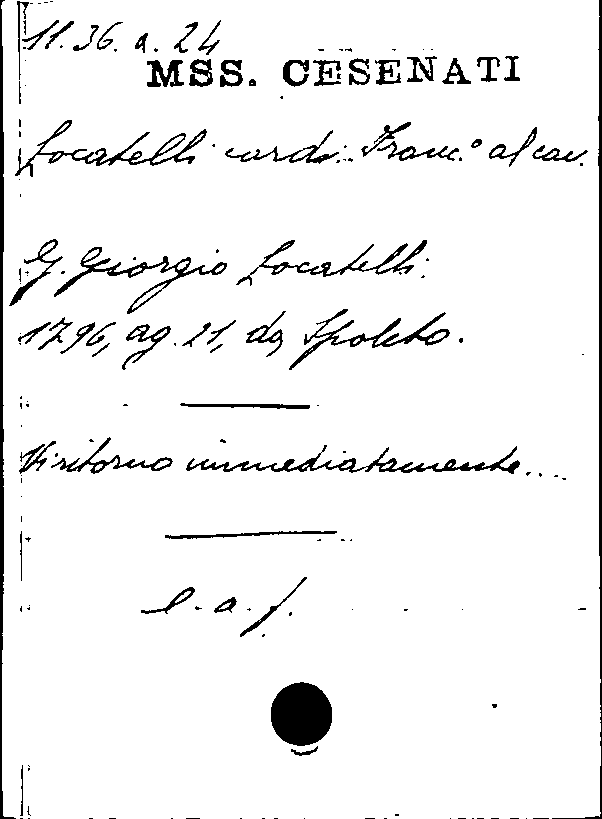 11.36. a. 24
MSS. CESENATI
Locatelli card. Franc.° al cav.
G. Giorgio Locatelli.
1796, ag. 21, da Spoleto.
Vi ritorno immediatamente....
l. a. f.